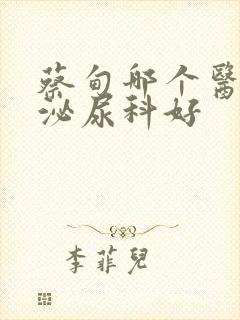 蔡甸哪个醫
泌尿科好
李菲兒